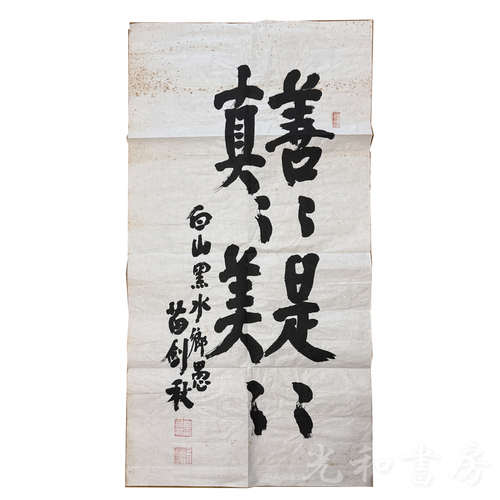 善〻是〻
真〻美〻
白山黑水鄉愚
苗剣秋
光和書房